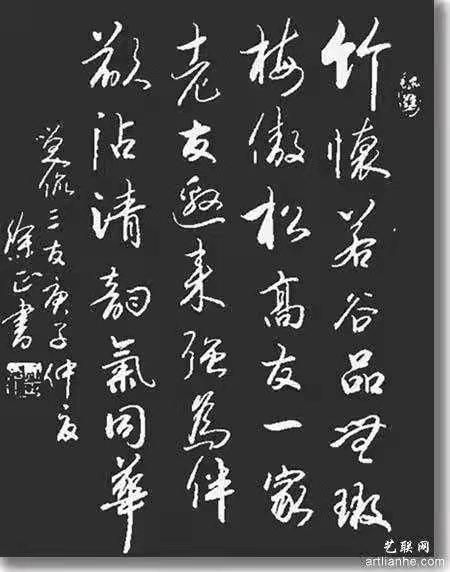 竹懷若谷品無瑕
梅傲松高友一家
老友邀来強為伴
欲沾清韵氣同華
笑侃三友庚子仲夏
徐正書
艺联网
artlianhe.com